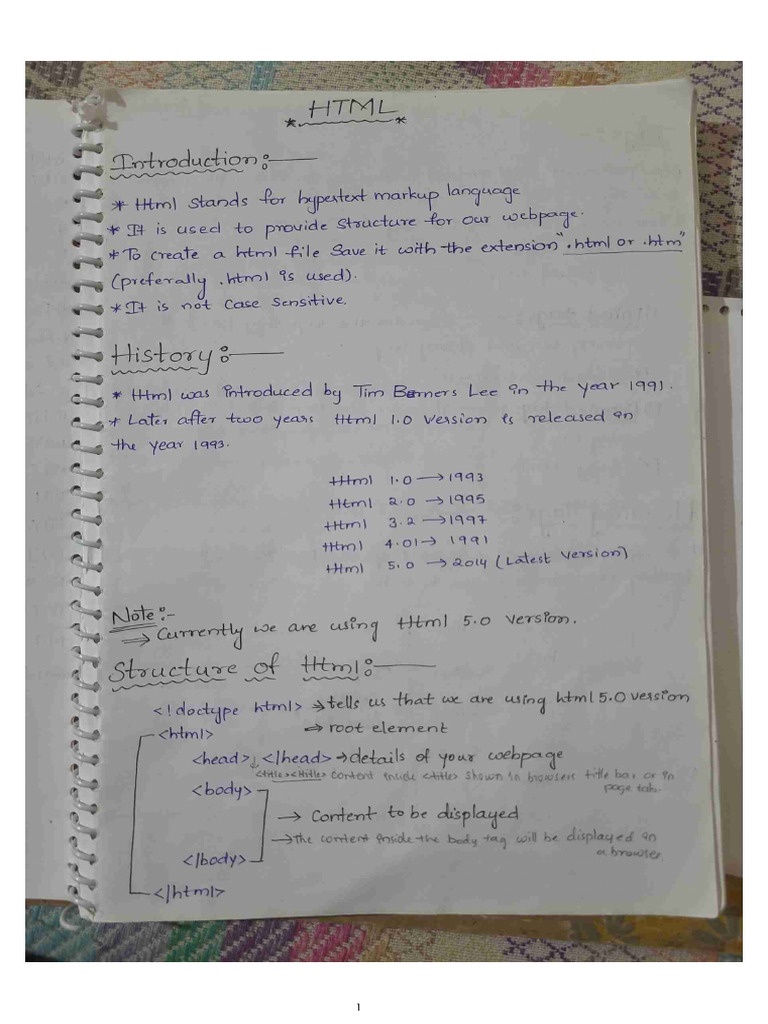 HTML
Introduction:-
* Html stands for hypertext markup language
* It is used to provide structure for our webpage.
* To create a html file save it with the extension ".html or .htm"
(preferally .html is used).
* It is not case sensitive.
History:-
* Html was introduced by Tim Berners Lee in the year 1991.
* Later after two years Html 1.0 version is released in
the year 1993.
Html 1.0 → 1993
Html 2.0 → 1995
Html 3.2 → 1997
Html 4.01 → 1991
Html 5.0 → 2014 (Latest version)
Note:-
⇒ Currently we are using Html 5.0 version.
Structure of Html:-
<!doctype html> → tells us that we are using html 5.0 version
<html> ⇒ root element
<head> </head> → details of your webpage
<title></title> content inside <title> shown in browsers title bar or in
page tab.
<body>
→ Content to be displayed
→ The content inside the body tag will be displayed in
a browser.
</body>
</html>
1